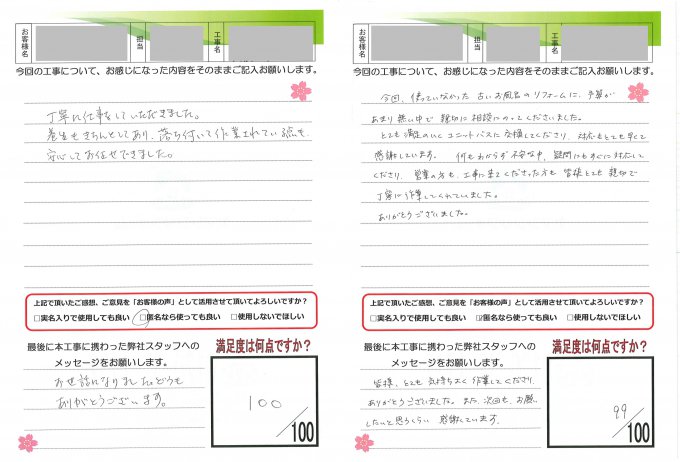 お客様名
担当
工事名
今回の工事について、お感じになった内容をそのままご記入お願いします。
丁寧に仕事をしていただきました。
養生もきちんとしてあり、落ち付いて作業されている姿も
安心してお任せできました。
上記で頂いたご感想、ご意見を「お客様の声」として活用させて頂いてよろしいですか?
□実名入りで使用しても良い □匿名なら使っても良い □使用しないでほしい
最後に本工事に携わった弊社スタッフへの
メッセージをお願いします。
お世話になりました。どうも
ありがとうございます。
満足度は何点ですか?
100
/100
お客様名
担当
工事名
今回の工事について、お感じになった内容をそのままご記入お願いします。
今回、使っていなかった古いお風呂のリフォームに、予算が
あまり無い中で親切に相談にのってくださいました。
とても満足のいくユニットバスに交換してくださり、対応もとても早くて
感謝しています。何もわからず不安な中、疑問にもすぐに対応して
くださり、営業の方も、工事に来てくださった方も皆様とても親切で
丁寧に作業してくれていました。
ありがとうございました。
上記で頂いたご感想、ご意見を「お客様の声」として活用させて頂いてよろしいですか?
□実名入りで使用しても良い ☑匿名なら使っても良い □使用しないでほしい
最後に本工事に携わった弊社スタッフへの
メッセージをお願いします。
皆様、とても気持ちよく作業してくださり、
ありがとうございました。また、次回も、お願い
したいと思うくらい感謝しています。
満足度は何点ですか?
99
/100